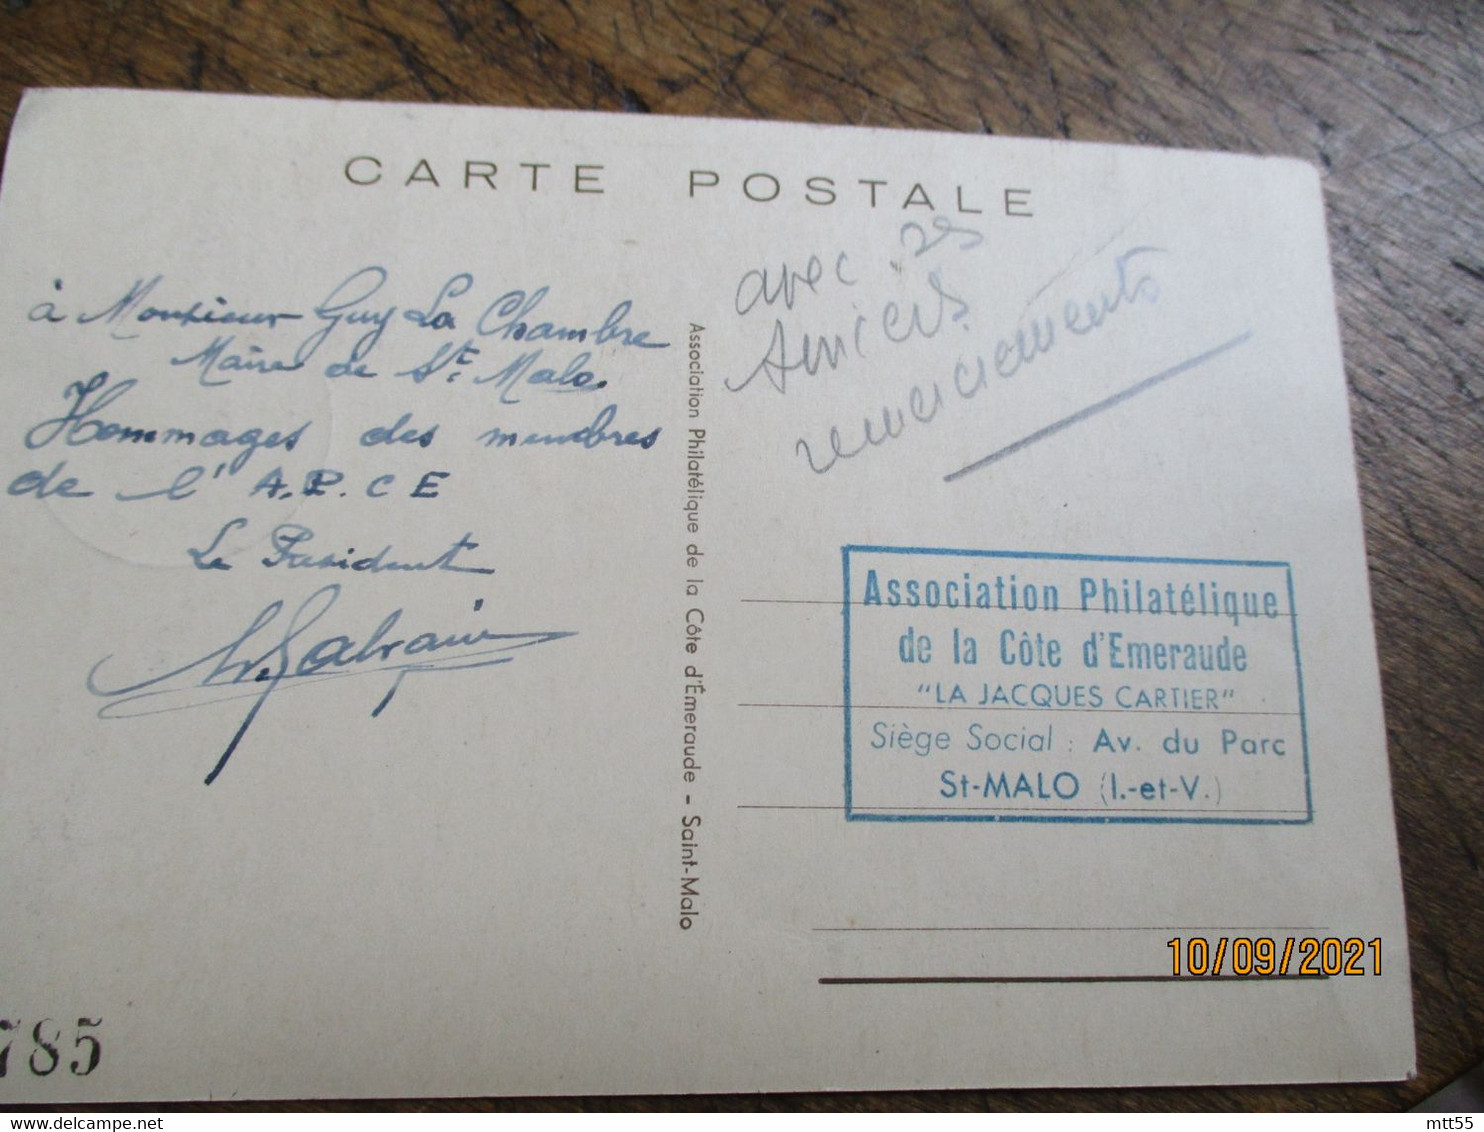 CARTE POSTALE
à Monsieur Guy La Chambre
Maire de St. Malo.
Hommages des membres
de l'A.P.C E
Le President
Association Philatélique de la Côte d'Émeraude - Saint-Malo
avec
remerciements
Association Philatélique
de la Côte d'Emeraude
"LA JACQUES CARTIER"
Siège Social : Av. du Parc
St-MALO (I.-et-V.)
785
10/09/2021
mtt55